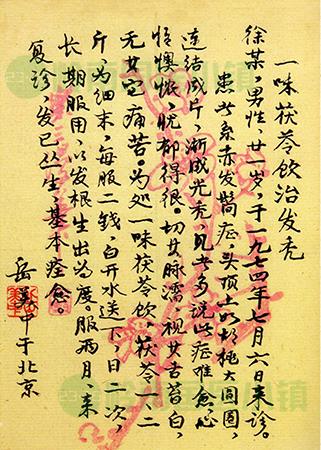 一味茯苓饮治发秃
徐某,男性,廿一岁,于一九七四年七月六日来诊。
患者系发症,头顶上如胡桃大圆圈,
连结成片,渐成光秃,见者多说此症难愈,心
情懊憹,忧郁得很。切其脉濡,视其舌苔白,
无其它痛苦。为处一味茯苓饮,茯苓一、二
斤,为细末,每服二钱,白开水送下日二次,
长期服用,以发根生出为度。服两月,来
复诊,发已丛生,基本痊愈。
岳美中于北京